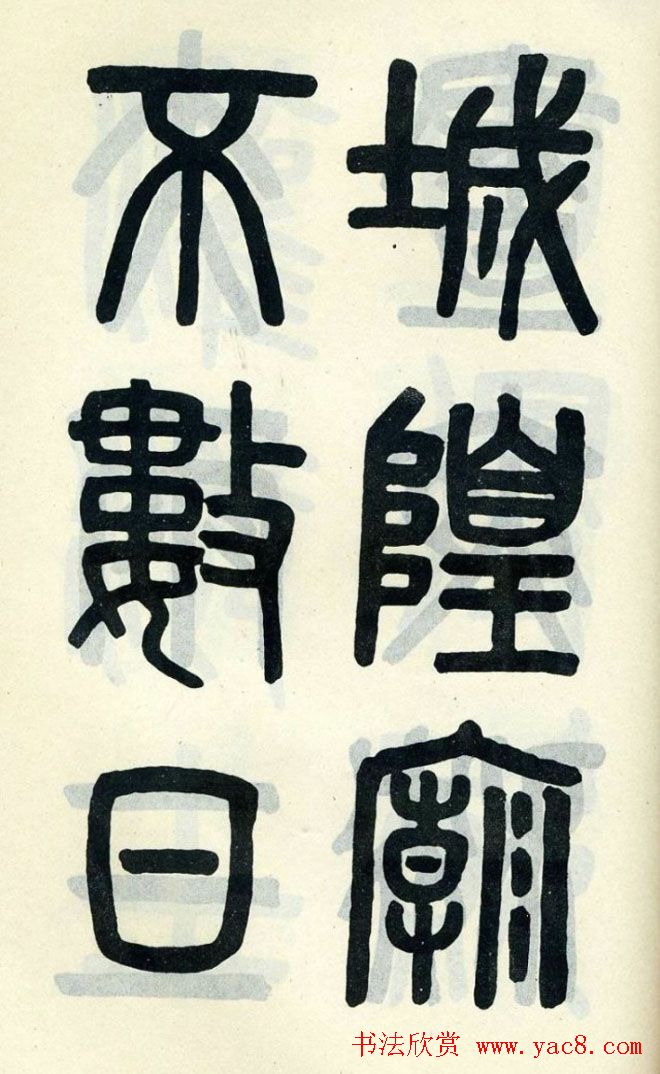 城隍廟
不數日
书法欣赏 www.yac8.com